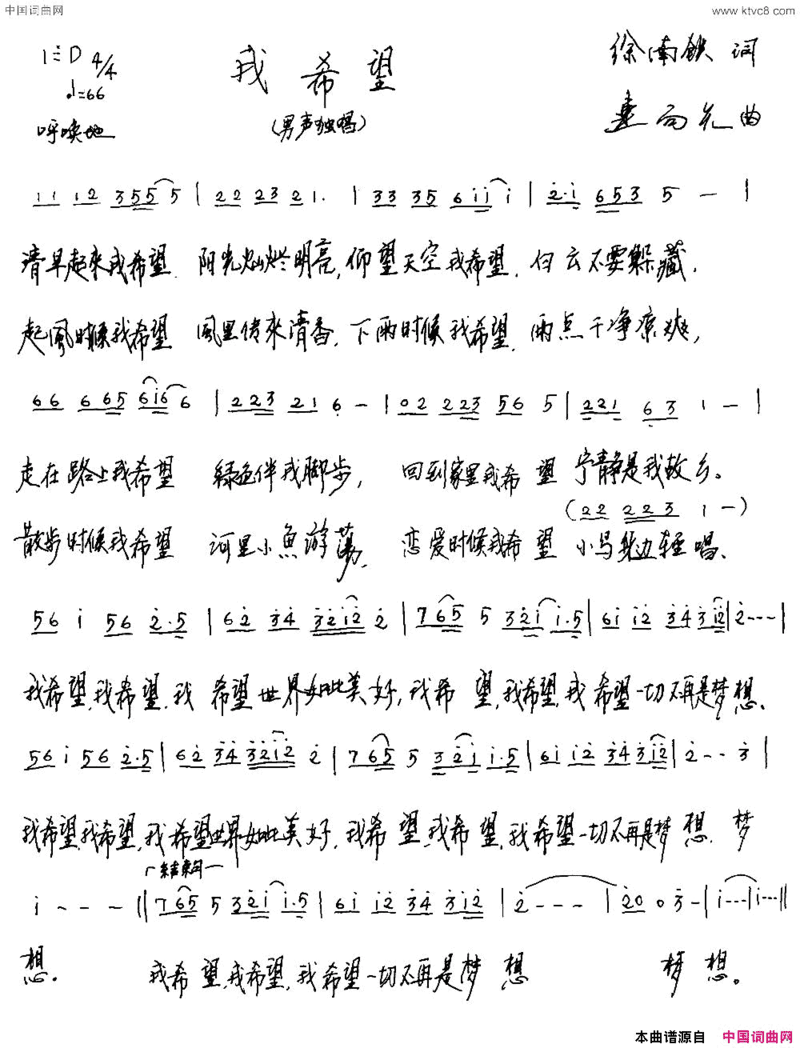 中国词曲网 www.ktvc8.com
1=D 4/4
♩=66
呼唤地
我希望
(男声独唱)
徐南铁 词
曲
1 1 1 2 3 5 5 5 | 2 2 2 3 2 1. | 3 3 3 5 6 i i i | 2̇. i 6 5 3 5 — |
清早起来我希望. 阳光灿烂明亮,仰望天空我希望. 白云不要躲藏,
起風时候我希望 風里传來清香,下雨时候我希望.雨点干净凉爽,
6 6 6 6 5 6 i 6 6 | 2 2 3 2 1 6 — | 0 2 2 2 3 5 6 5 | 2 2 1 6 3 1 — |
走在路上我希望 绿色伴我脚步, 回到家里我希望 宁静是我故乡。
(2 2 2 2 3 1 —)
散步时候我希望 河里小魚游荡, 恋爱时候我希望 小鸟身边轻唱、
5 6 i 5 6 2̇. 5 | 6 2̇ 3̇ 4̇ 3̇ 2̇ i 2̇ 2̇ | 7 6 5 5 3 2̇ i i. 5 | 6 i i 2̇ 3̇ 4̇ 3̇ i 2̇ | 2̇ - - - |
我希望,我希望,我 希望世界如此美好,我希 望,我希望,我希望一切不再是梦想、
5 6 i 5 6 2̇. 5 | 6 2̇ 3̇ 4̇ 3̇ 2̇ i 2̇ 2̇ | 7 6 5 5 3 2̇ i i. 5 | 6 i i 2̇ 3̇ 4̇ 3̇ i 2̇ | 2̇ - - 3̇ |
我希望,我希望,我希望世界如此美好,我希 望,我希望,我希望一切不再是梦想. 梦
结束句
i - - - || 7 6 5 5 3 2̇ i i. 5 | 6 i i 2̇ 3̇ 4̇ 3̇ i 2̇ | 2̇ - - - | 2̇ 0 0 3̇ - | i - - - | i - - - ||
想. 我希望,我希望,我希望一切不再是梦想 梦想。
本曲谱源自 中国词曲网